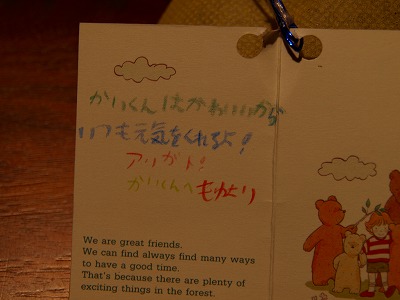 かいくんはかわいいから
いつも元気をくれるよ!
アリガト!
かいくんへ もかより
We are great friends.
We can find always find many ways
to have a good time.
That's because there are plenty of
exciting things in the forest.